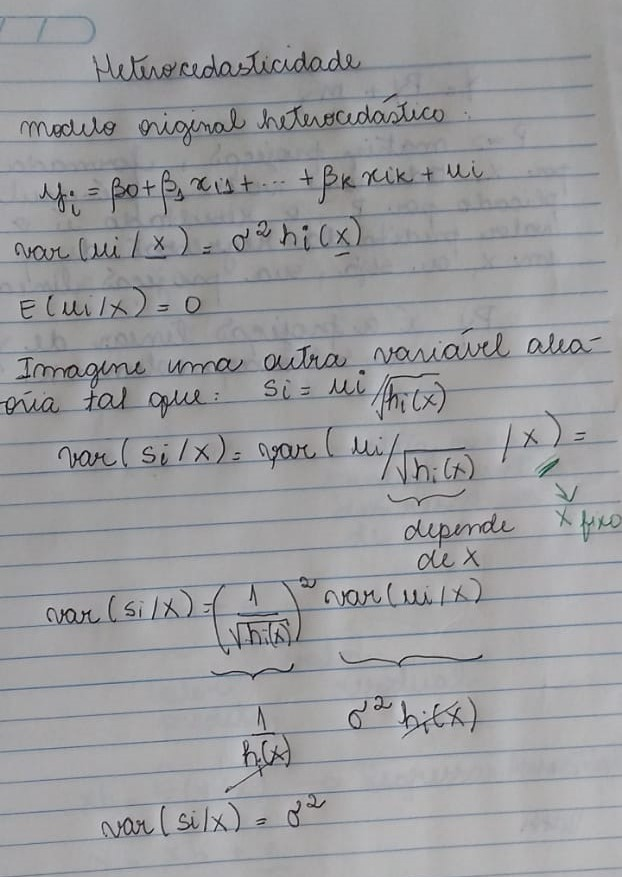 Heterocedasticidade
modelo original heterocedástico:
yi = β0 + β1 xi1 + ... + βk xik + ui
var (ui / x) = σ² hi (x)
E (ui / x) = 0
Imagine uma outra variável alea-
ória tal que: si = ui/√hi(x)
var (si / x) = var ( ui/√hi(x) / x ) =
depende
de x
x fixo
var (si / x) = (1/√hi(x))² var (ui / x)
1/hi(x) σ² hi(x)
var (si / x) = σ²